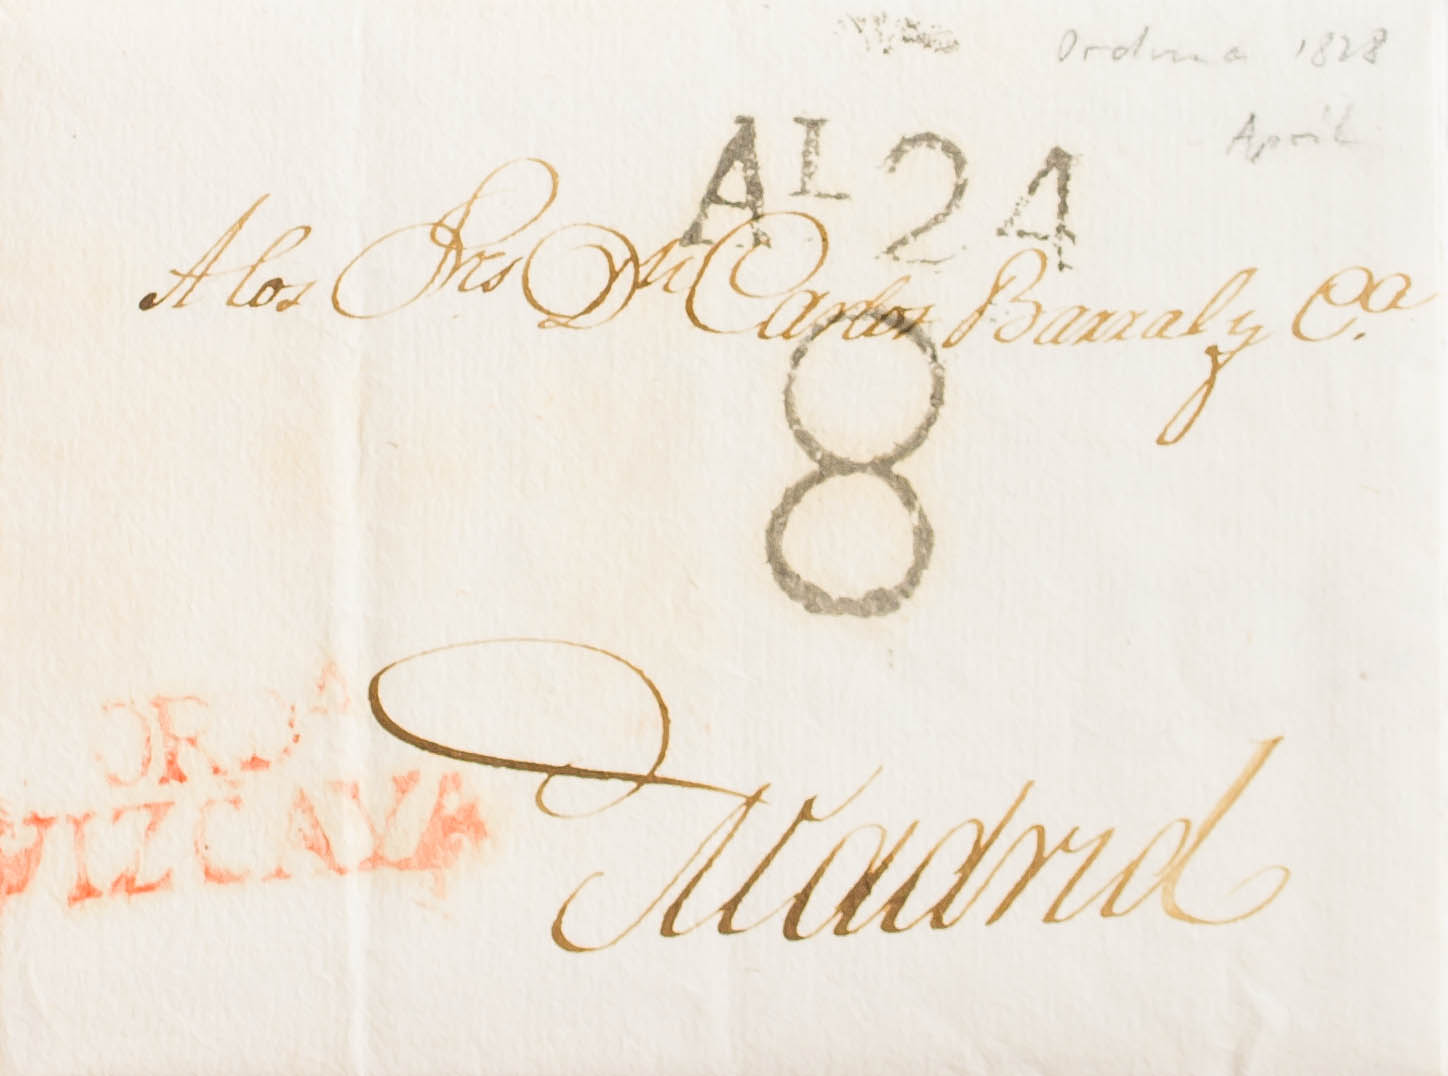 Orduna 1828
April
AL 24
A los Sres Dn Carlos Barral y Ca
8
ORDA
VIZCAYA
Madrid